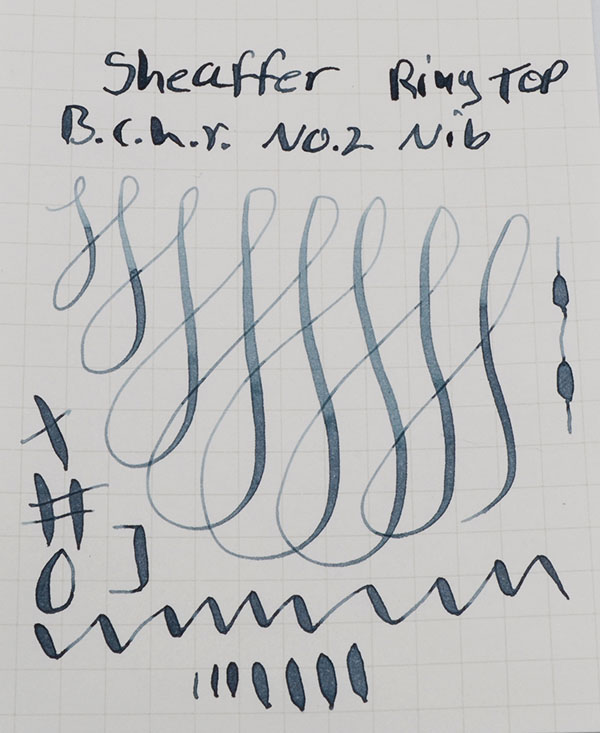 Sheaffer Ring Top
B.c.h.r. No.2 Nib